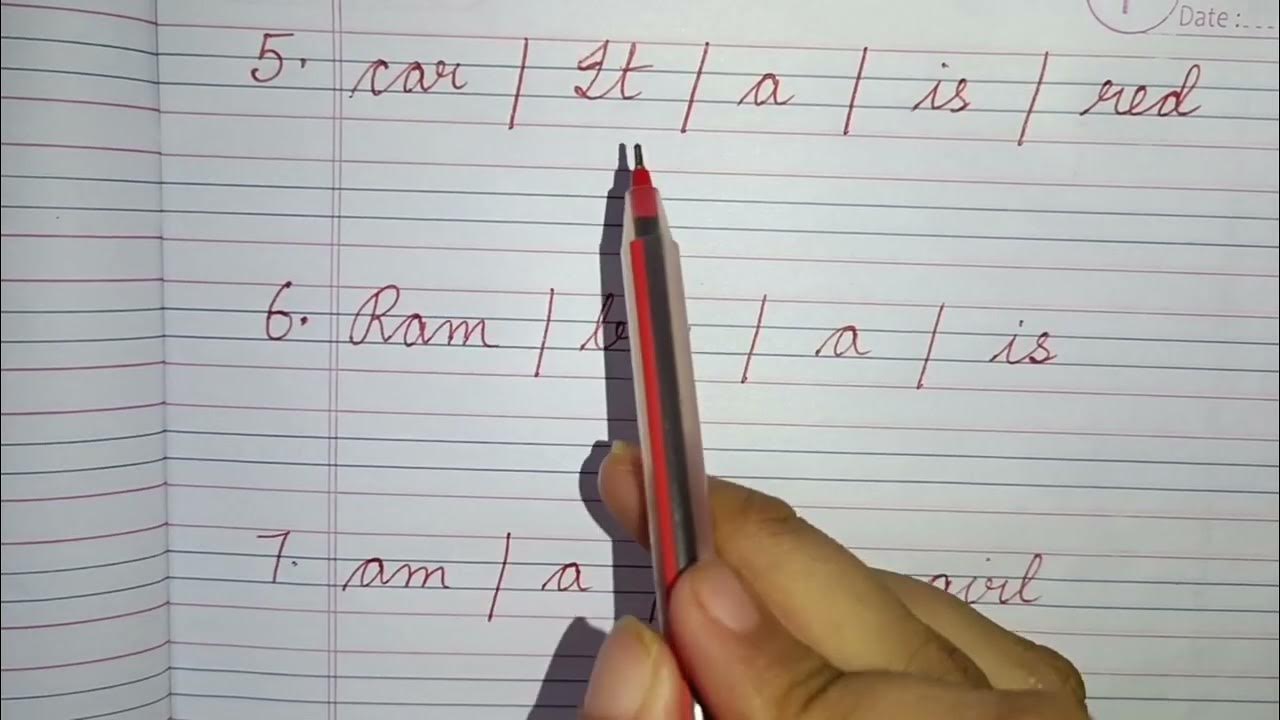 Date :
5. car / It / a / is / red
6. Ram / / a / is
7. am / a / girl